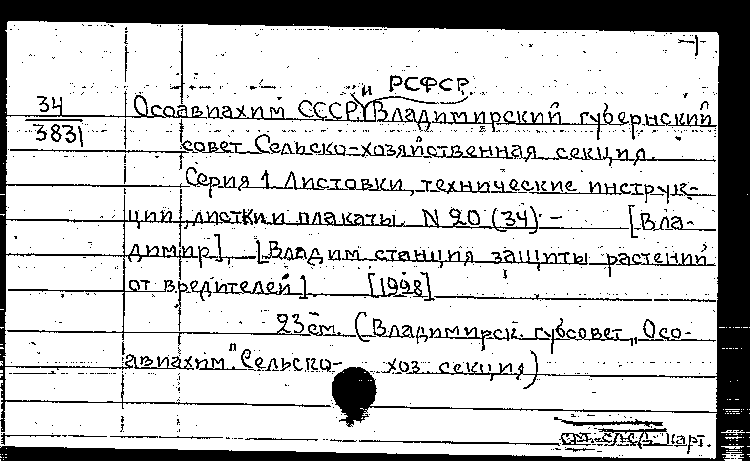 и РСФСР.
34
3831
Осоавиахим СССР. Владимирский губернский
совет Сельско-хозяйственная секция.
Серия 1. Листовки, технические инструк-
ции, листки и плакаты. N 20 (34). - [Вла-
димир], [Владим станция защиты растений
от вредителей]. [1928]
23 см. (Владимирск. губсовет „Осо-
авиахим." Сельско- хоз. секция)
см. след. карт.